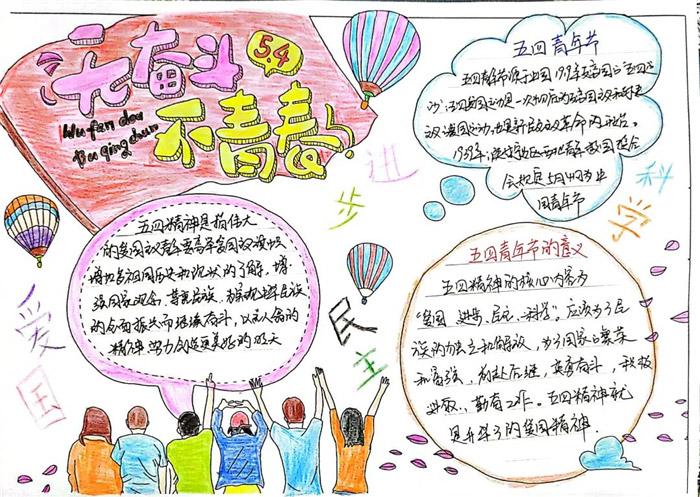 无奋斗
5.4
不青春
Wu fen dou
Bu qing chun
五四青年节
五四青年节源于中国1919年反帝的"五四运
动",五四爱国运动是一次彻底的反帝国主义和封建
主义爱国运动,也是新民主主义革命的开始。
1939年,陕甘宁边区西北青年救国联合
会规定5月4日为中
国青年节
进
步
科
学
爱
国
民
主
五四精神是指伟大
的爱国主义
增加各祖国历史和现状的了解,增
强国家观念,
的全面振兴而拼搏奋斗,以
精神努力创造更美好的明天
五四青年节的意义
五四精神的核心内容为
"爱国、进步、民主、科学"。应该为了民
族的独立和解放,为了国家的繁荣
和富强,前赴后继,英勇奋斗,积极
进取,勤奋工作。五四精神就
是升华了的爱国精神.